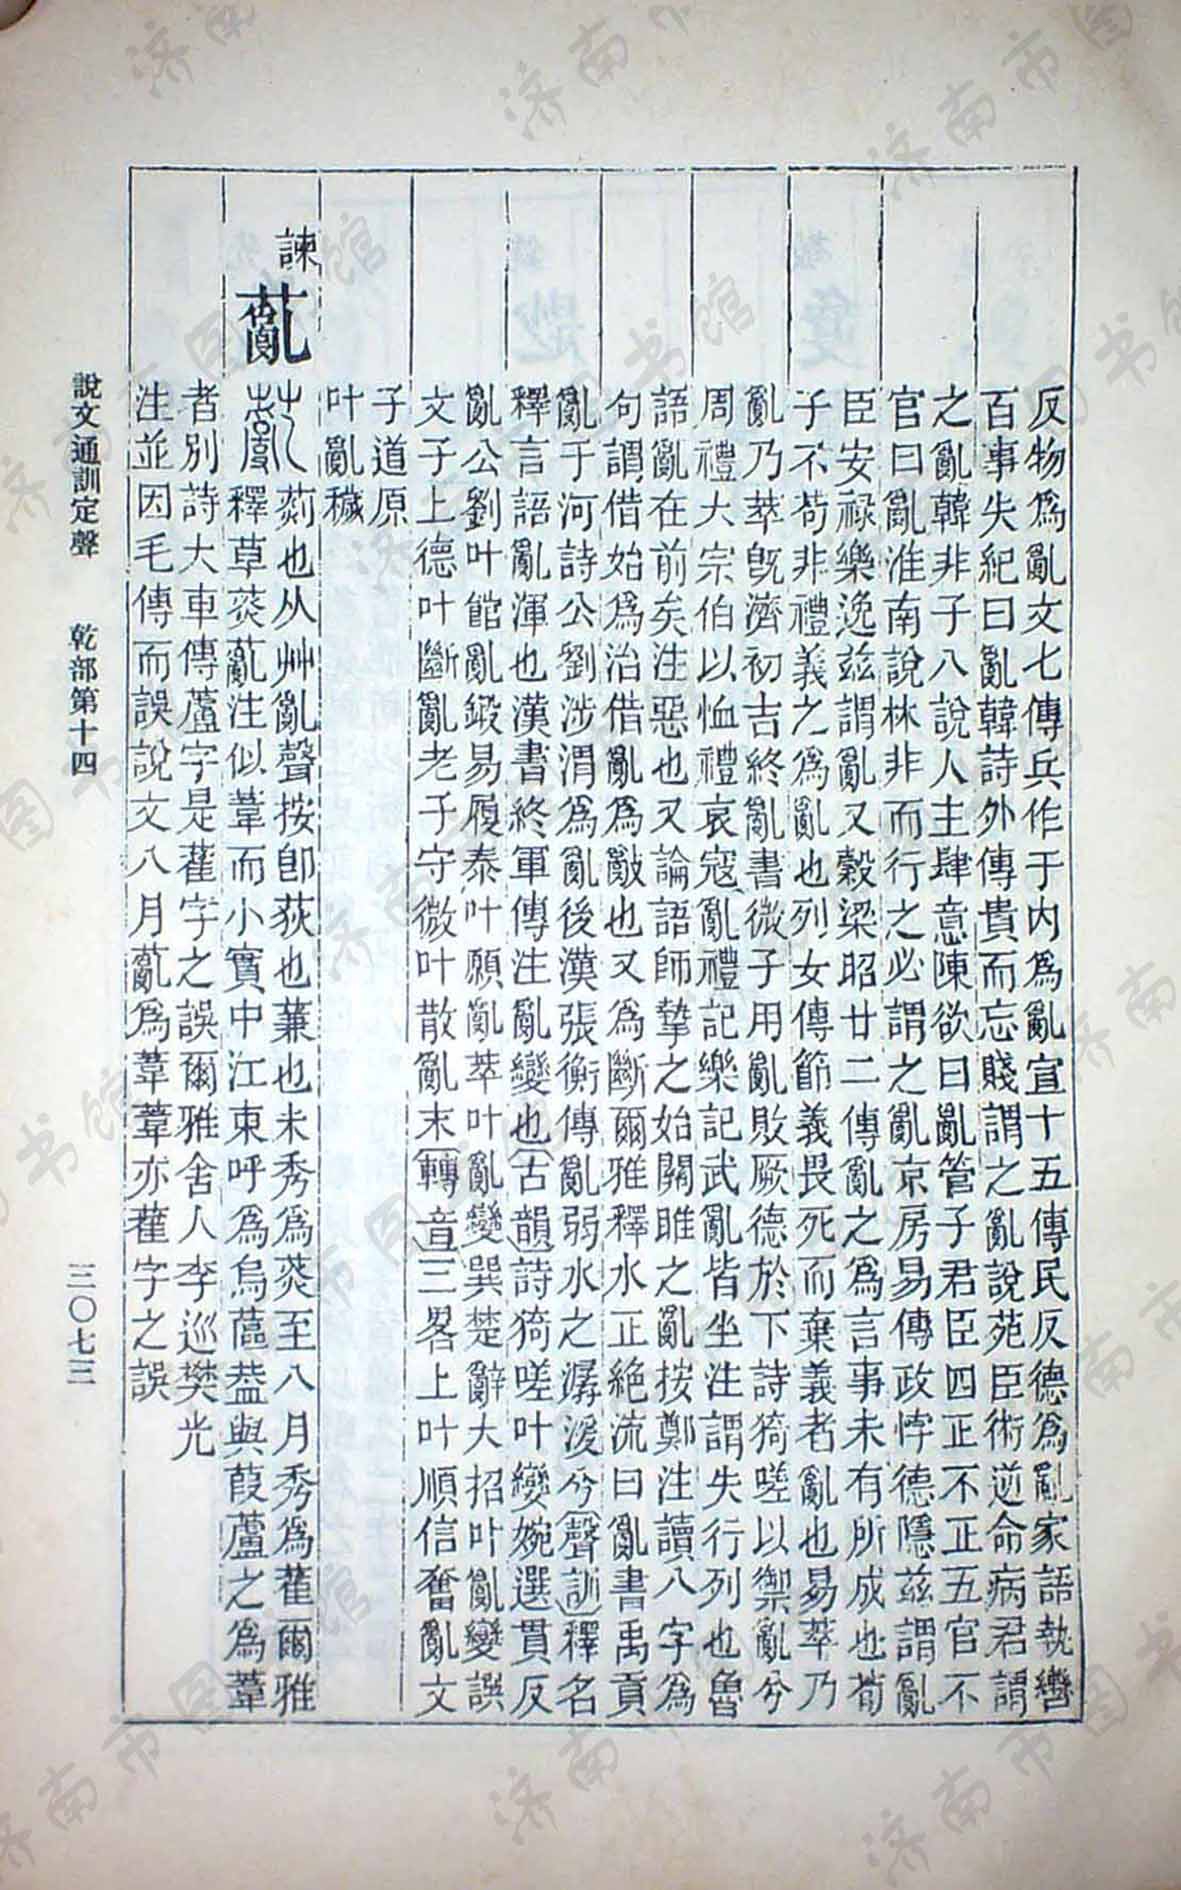 反物爲亂文七傳兵作于內爲亂宣十五傳民反德爲亂家語執轡
百事失紀曰亂韓詩外傳貴而忘賤謂之亂說苑臣術逆命病君謂
之亂韓非子八說人主肆意陳欲曰亂管子君臣四正不正五官不
官曰亂淮南說林非而行之必謂之亂京房易傳政悖德隱茲謂亂
臣安祿樂逸茲謂亂又穀梁昭廿二傳亂之爲言事未有所成也荀
子不苟非禮義之爲亂也列女傳節義畏死而棄義者亂也易萃乃
亂乃萃旣濟初吉終亂書微子用亂敗厥德於下詩猗嗟以禦亂兮
周禮大宗伯以恤禮哀寇亂禮記樂記武亂皆坐注謂失行列也魯
語亂在前矣注惡也又論語師摯之始關雎之亂按鄭注讀八字爲
句謂借始爲治借亂爲敵也又爲斷爾雅釋水正絕流曰亂書禹貢
亂于河詩公劉涉渭爲亂後漢張衡傳亂弱水之潺湲兮聲訓釋名
釋言語亂渾也漢書終軍傳注亂變也古韻詩猗嗟叶變婉選貫反
亂公劉叶館亂鍛易履泰叶願亂萃叶亂變巽楚辭大招叶亂變譔
文子上德叶斷亂老子守微叶散亂末轉音三畧上叶順信奮亂文
子道原
叶亂穢
諫
薍 薍 薍也从艸亂聲按卽荻也蒹也未秀爲菼至八月秀爲雚爾雅
釋草菼薍注似葦而小實中江東呼爲烏蓲葢與葭蘆之爲葦
者別詩大車傳蘆字是雚字之誤爾雅舍人李巡樊光
注並因毛傳而誤說文八月薍爲葦葦亦雚字之誤
說文通訓定聲 乾部第十四 三〇七三
济南市图书馆